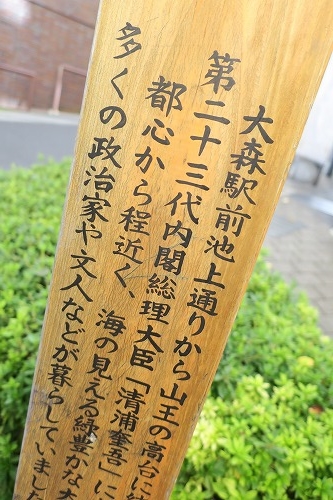 大森駅前池上通りから山王の高台に
第二十三代内閣総理大臣「清浦奎吾」に
都心から程近く、海の見える緑豊かな
多くの政治家や文人などが暮らしていまし